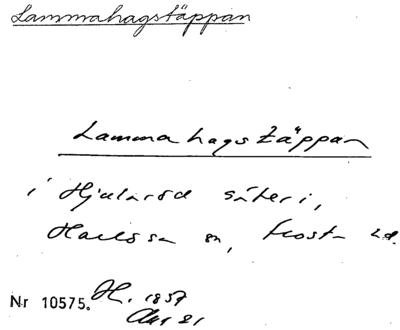 Lammahagstäppan
Lammahagstäppan
i Hjularöd säteri,
Harlösa sn, Frosta hd.
Nr 10575. H. 1857
Akt 21